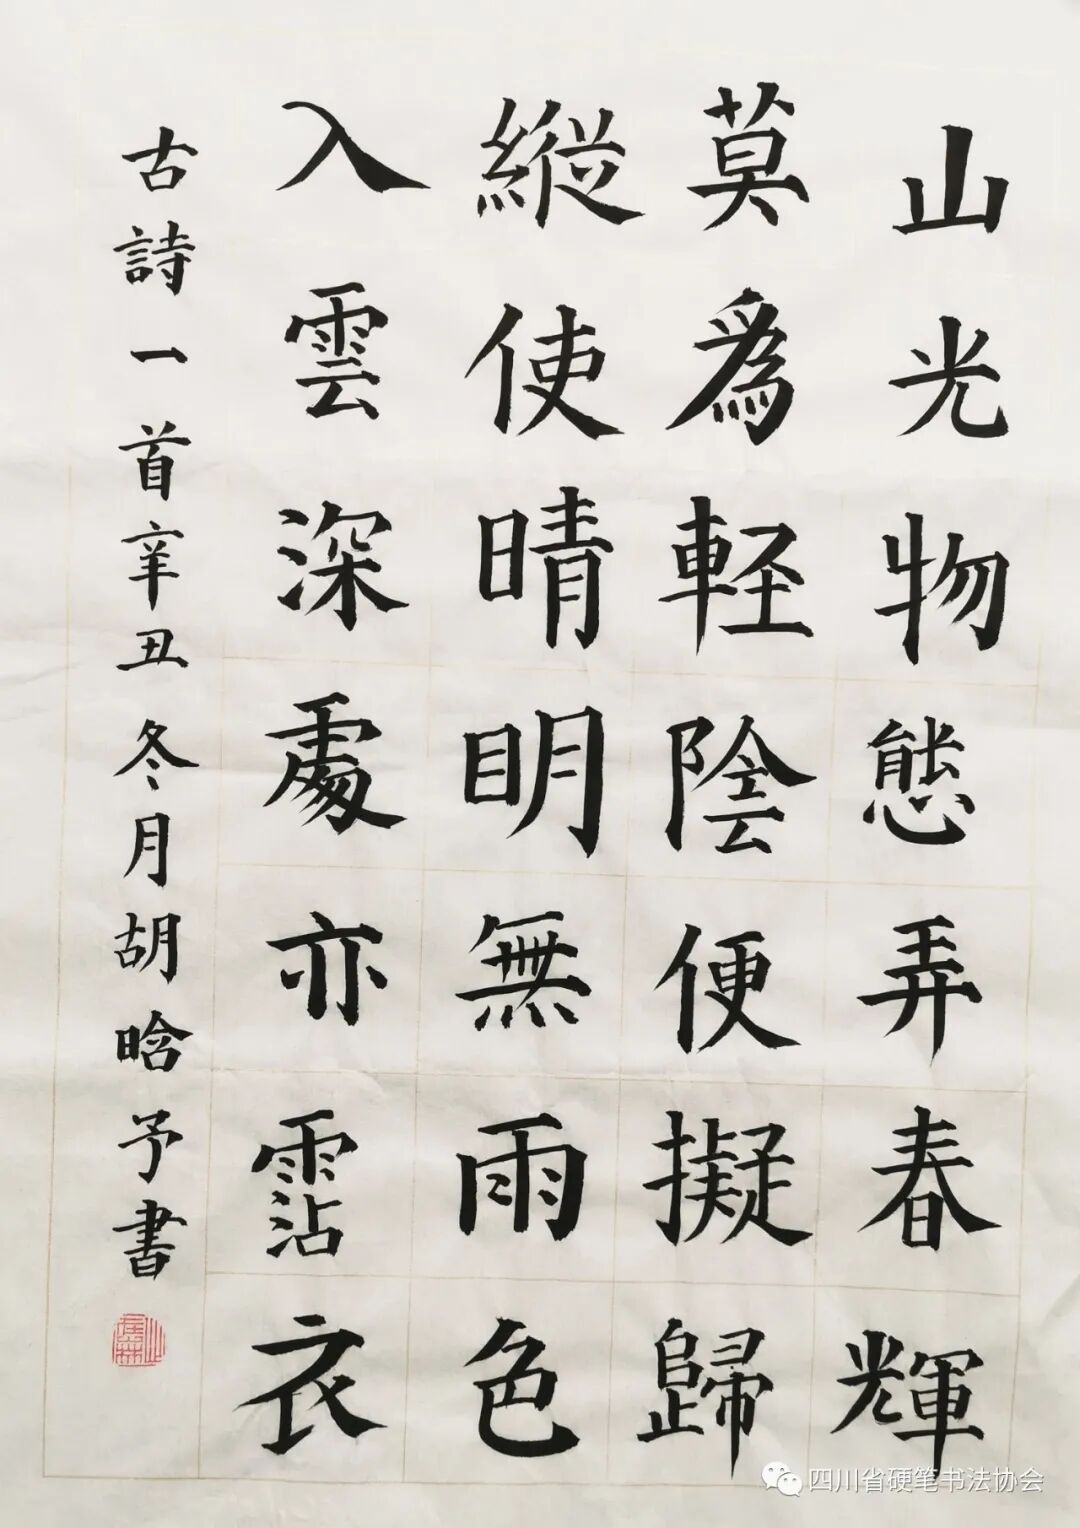 山光物態弄春輝
莫為輕陰便擬歸
縱使晴明無雨色
入雲深處亦霑衣
古詩一首辛丑冬月胡晗予書
四川省硬笔书法协会